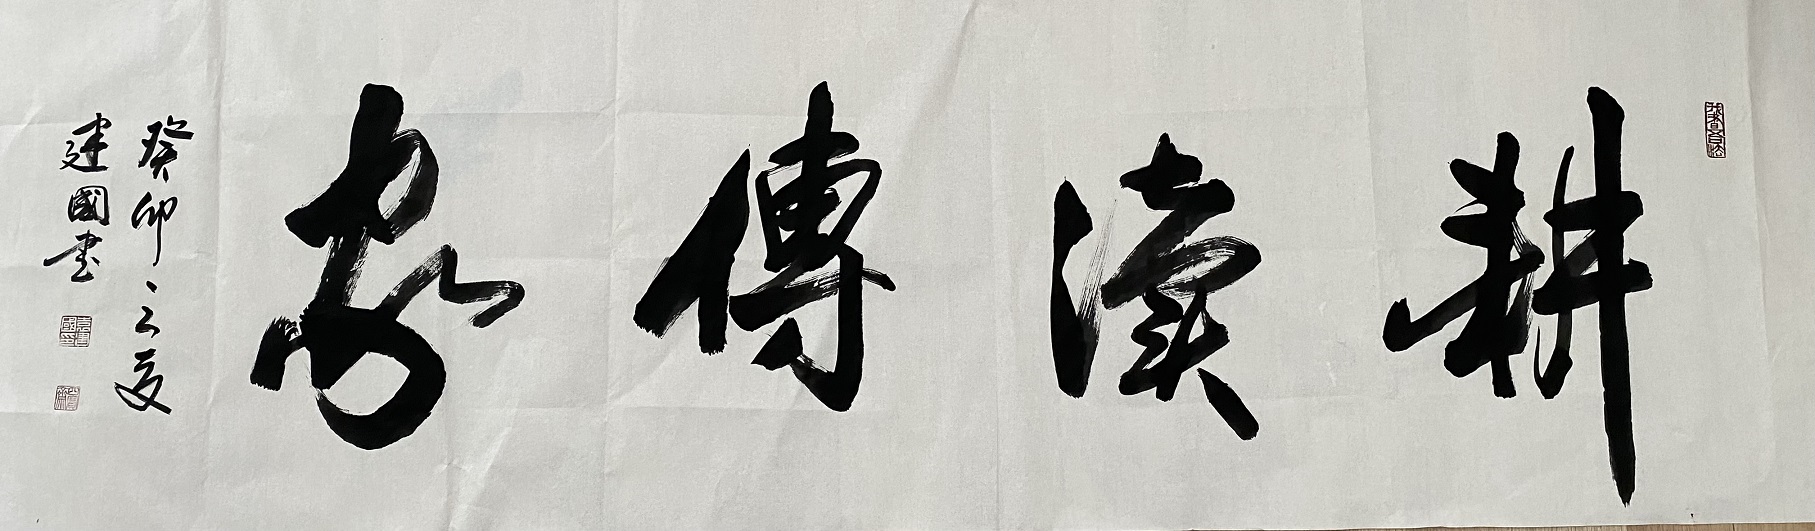 耕读傳家
癸卯之夏
建國書